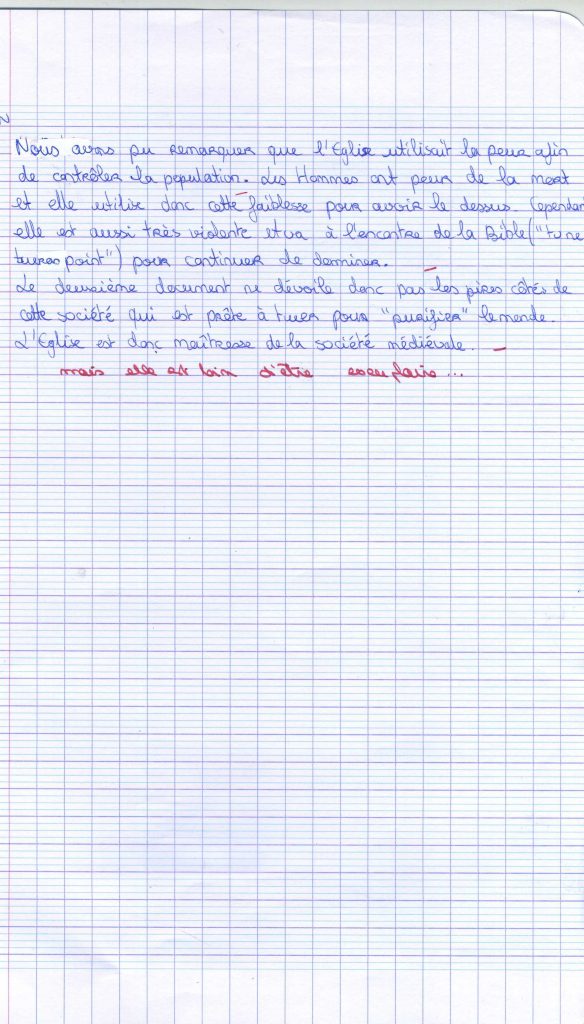 Nous avons pu remarquer que l'Eglise utilisait la peur afin
de contrôler la population. Les Hommes ont peur de la mort
et elle utilise donc cette faiblesse pour avoir le dessus. Cependan
elle est aussi très violente et va à l'encontre de la Bible ("tu ne
tueras point") pour continuer de dominer.
Le deuxième document ne dévoile donc pas les pires côtés de
cette société qui est prête à tuer pour "purifier" le monde.
L'Eglise est donc maîtresse de la société médiévale.
mais elle est loin d'être exemplaire...